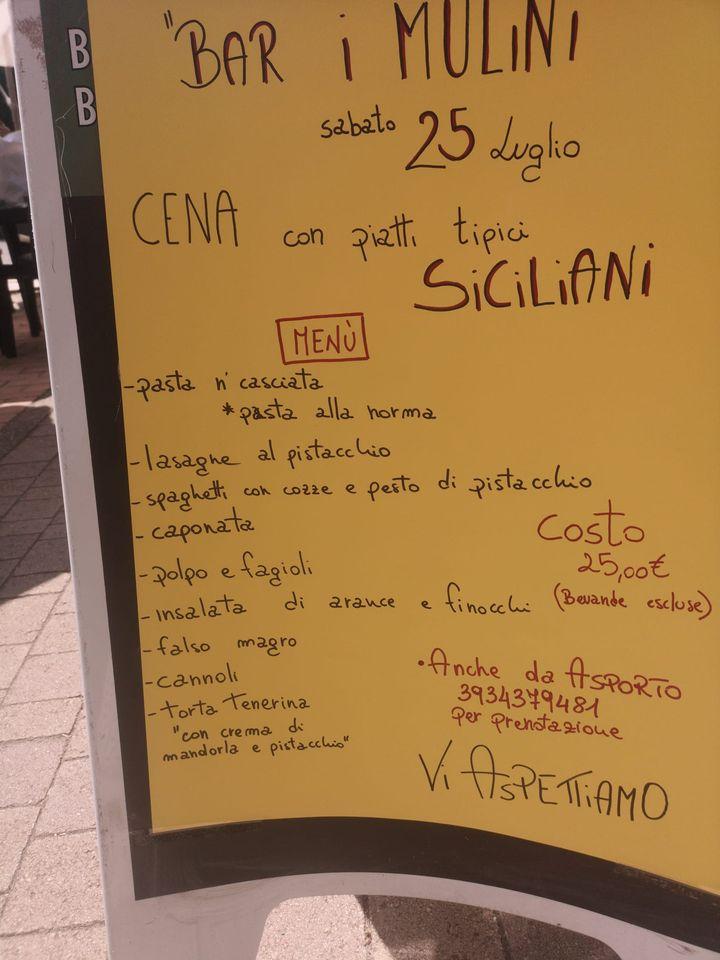 B
B
"BAR i MULINI
sabato 25 Luglio
CENA con piatti tipici
SICILIANI
MENÙ
-pasta n' casciata
*pasta alla norma
-lasagne al pistacchio
-spaghetti con cozze e pesto di pistacchio
-caponata
Costo
25,00€
-polpo e fagioli
-insalata di arance e finocchi (Bevande escluse)
-falso magro
-cannoli
•Anche da ASPORTO
3934379481
per prenotazione
-torta Tenerina
"con crema di
mandorla e pistacchio"
Vi ASPETTIAMO